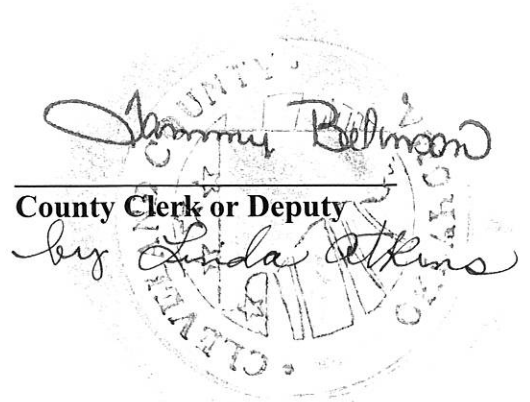 Tammy Belinson
County Clerk or Deputy
by Linda Atkins
CLEVELAND COUNTY
OKLAHOMA